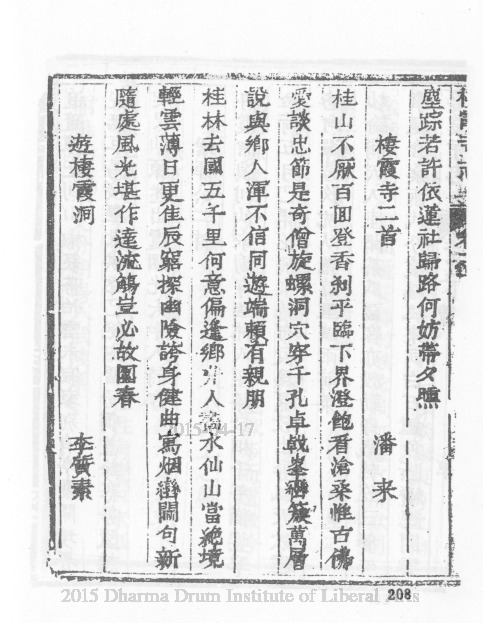 塵踪若許依蓮社歸路何妨帶夕曛
棲霞寺二首
潘耒
桂山不厭百囬登香刹平臨下界澄飽看滄桑惟古佛
愛談忠節是奇僧旋螺洞穴穿千孔卓戟峯巒簇萬層
說與鄉人渾不信同遊端頼有親朋
桂林去國五千里何意偏逢鄉人水仙山當絶境
輕雲薄日更佳辰窮探幽險誇身健曲寫烟巒鬬句新
隨處風光堪作達流觴豈必故園春
遊棲霞洞
李質素
208
2015-04-17
2015 Dharma Drum Institute of Liberal Arts